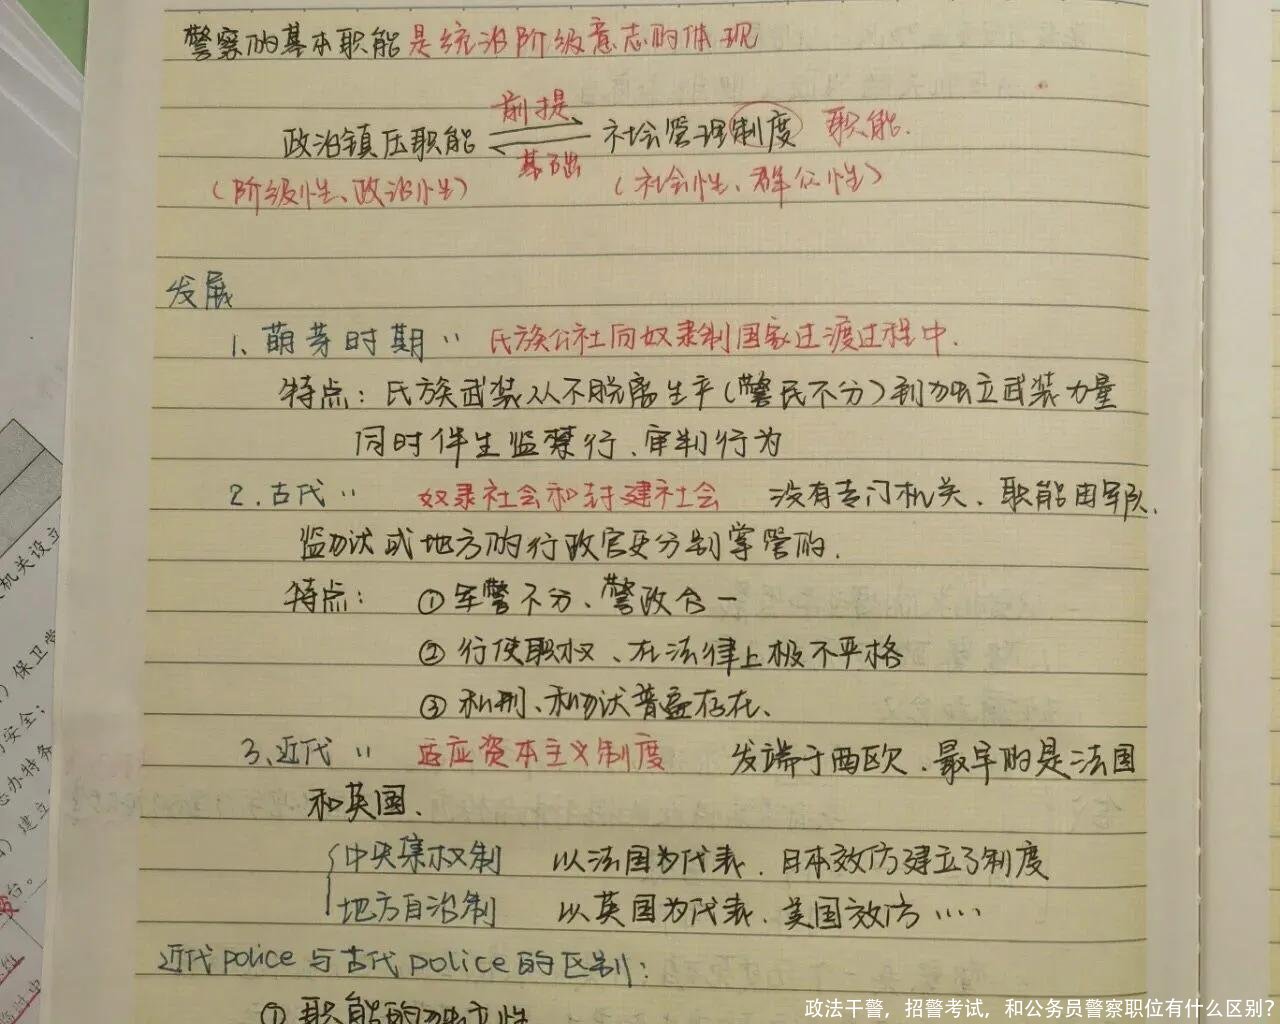 警察的基本职能是统治阶级意志的体现
前提
政治镇压职能 社会管理制度 职能.
基础
(阶级性、政治性) (社会性、群众性)
发展
1、萌芽时期 '' 氏族公社向奴隶制国家过渡过程中.
特点: 氏族武装从不脱离生产(警民不分)到独立武装力量
同时伴生监禁行、审判行为
2.古代 '' 奴隶社会和封建社会 没有专门机关、职能由军队、
监狱或地方的行政官吏分别掌管的.
特点: ①军警不分、警政合一
② 行使职权、在法律上极不严格
③ 私刑、私狱普遍存在、
3、近代 '' 适应资本主义制度 发端于西欧、最早的是法国
和英国、
中央集权制 以法国为代表、日本效仿建立了制度
地方自治制 以英国为代表、美国效仿 ....
近代police与古代police的区别:
① 职能的独立性
机关设立
) 保卫党
安全;
办特务
) 建立
台。
政法干警，招警考试，和公务员警察职位有什么区别？